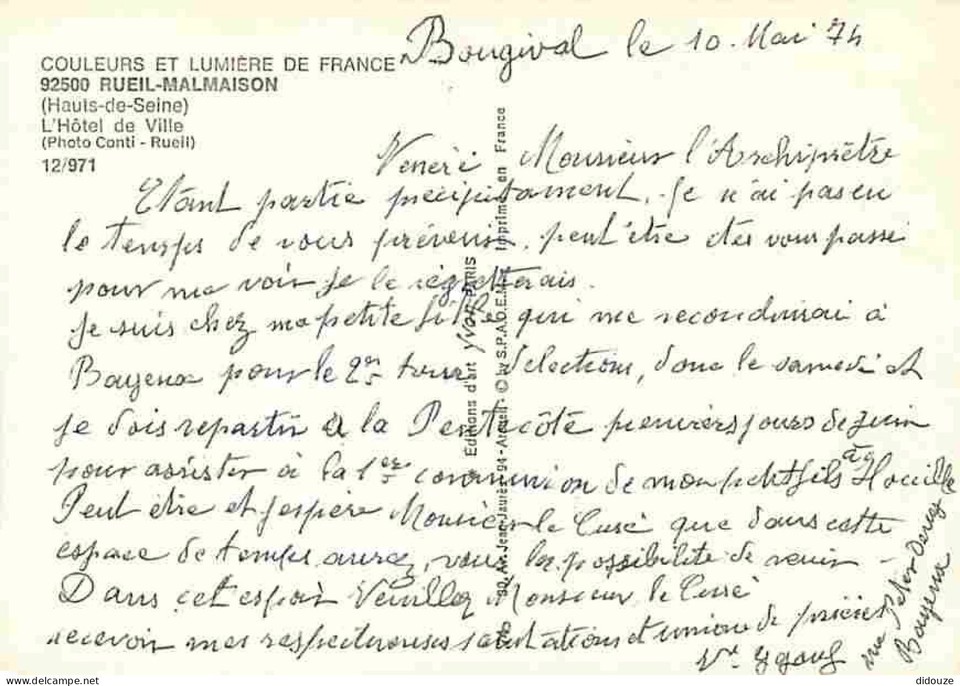 COULEURS ET LUMIÈRE DE FRANCE
92500 RUEIL-MALMAISON
(Hauts-de-Seine)
L'Hôtel de Ville
(Photo Conti - Rueil)
12/971
Bougival le 10. Mai 74
Monsieur l'Archiprêtre
Etant partie précipitament, je n'ai pas eu
le temps de vous prévenir, peut être êtes vous passé
pour me voir je le regretterais.
je suis chez ma petite fille qui me reconduirai à
pour le 2e tour d'élections, donc le samedi et
je dois repartir à la Pentecôte premiers jours de juin
pour assister à la 1er communion de mon petit fils à Houille
Peut être et j'espère Monsieur le Curé que dans cette
espace de temps aurez, vous la possibilité de venir -
Dans cet espoir Veuillez Monsieur le Curé
recevoir mes respectueuses salutations et union de prières
Vve
rue
Editions d'art YVON PARIS
90, Av. Jean-Jaurès 94 - Arcueil - © by S.P.A.D.E.M. Imprimé en France
didouze